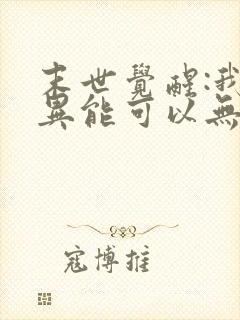 末世覺醒:我
異能可以無
寇博推